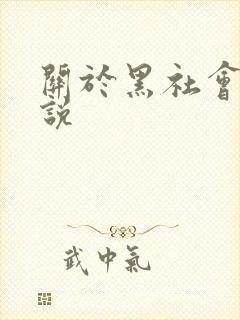 關於黑社會
説
武中氣